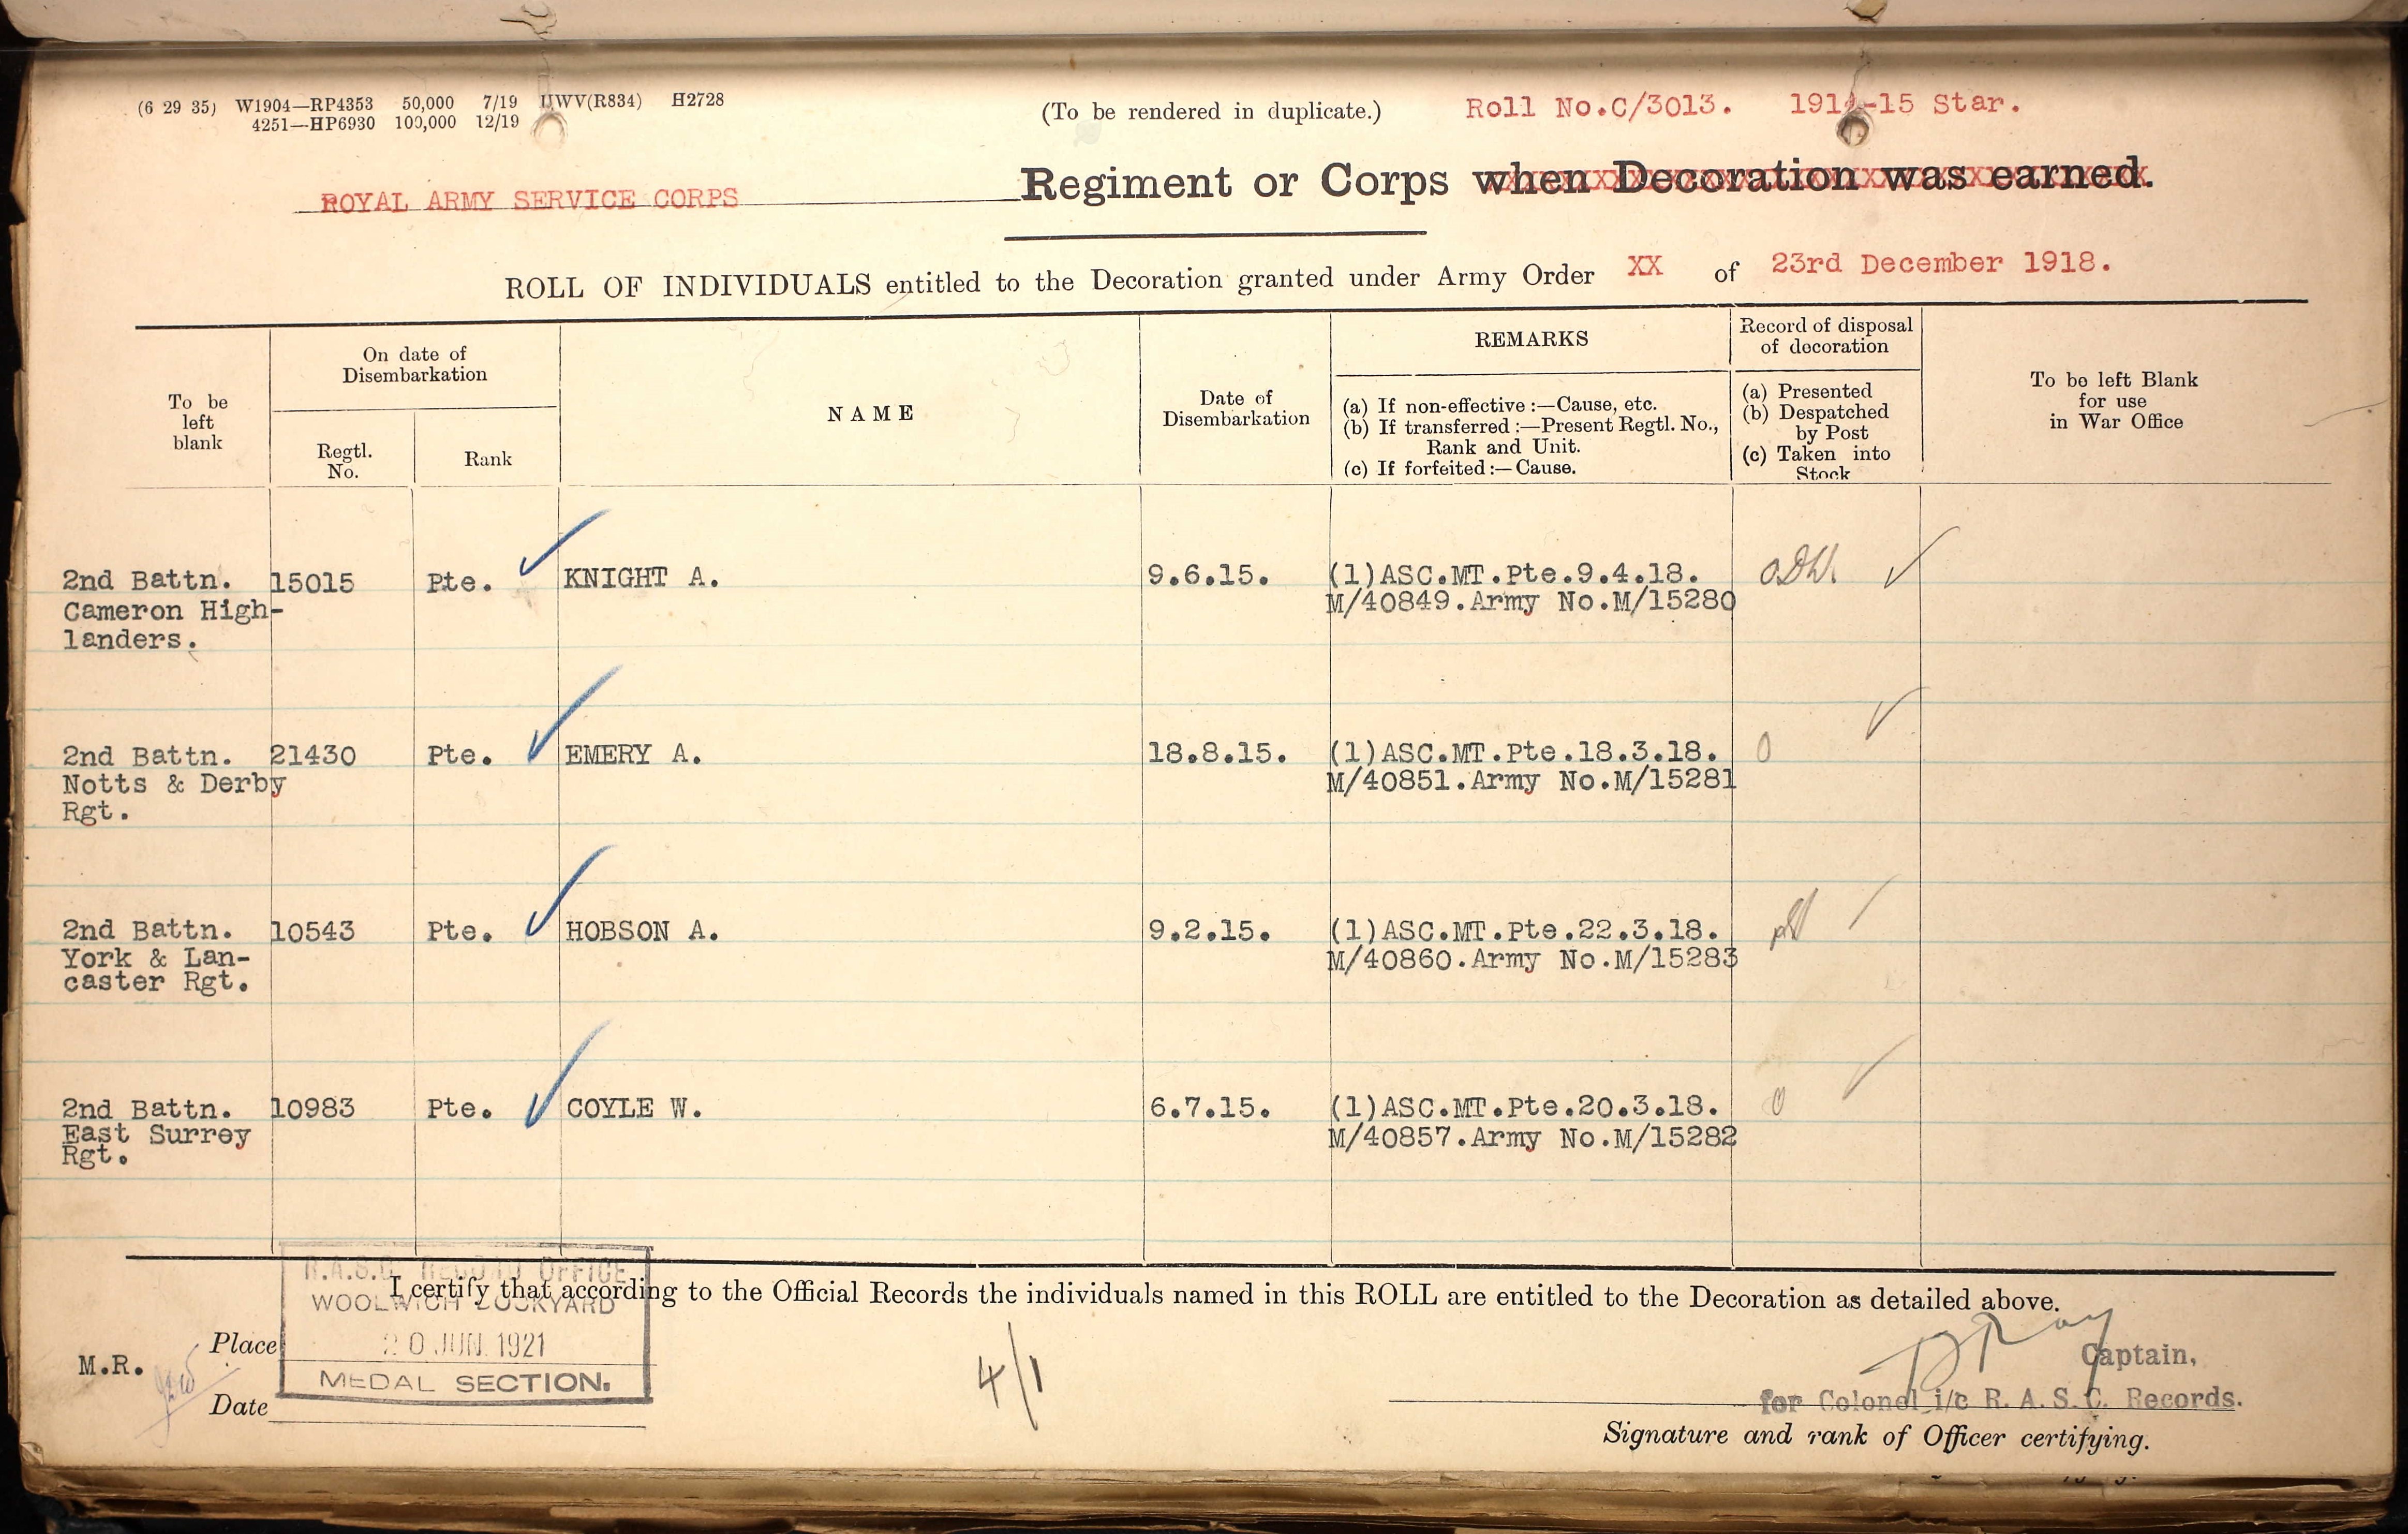 (6 29 35) W1904—RP4353 50,000 7/19 HWV(R834) H2728
4251—HP6930 100,000 12/19
(To be rendered in duplicate.) Roll No.C/3013. 1914-15 Star.
ROYAL ARMY SERVICE CORPS Regiment or Corps when Decoration was earned.
ROLL OF INDIVIDUALS entitled to the Decoration granted under Army Order XX of 23rd December 1918.
To be
left
blank
On date of
Disembarkation
Regtl.
No.
Rank
NAME
Date of
Disembarkation
REMARKS
(a) If non-effective :—Cause, etc.
(b) If transferred :—Present Regtl. No.,
Rank and Unit.
(c) If forfeited :—Cause.
Record of disposal
of decoration
(a) Presented
(b) Despatched
by Post
(c) Taken into
Stock
To be left Blank
for use
in War Office
2nd Battn. 15015 Pte. KNIGHT A. 9.6.15. (1)ASC.MT.Pte.9.4.18.
Cameron High- M/40849.Army No.M/15280
landers.
2nd Battn. 21430 Pte. EMERY A. 18.8.15. (1)ASC.MT.Pte.18.3.18. O
Notts & Derby M/40851.Army No.M/15281
Rgt.
2nd Battn. 10543 Pte. HOBSON A. 9.2.15. (1)ASC.MT.Pte.22.3.18.
York & Lan- M/40860.Army No.M/15283
caster Rgt.
2nd Battn. 10983 Pte. COYLE W. 6.7.15. (1)ASC.MT.Pte.20.3.18. O
East Surrey M/40857.Army No.M/15282
Rgt.
R.A.S.C. RECORD OFFICE
I certify that according to the Official Records the individuals named in this ROLL are entitled to the Decoration as detailed above.
WOOLWICH DOCKYARD
Place 20 JUN 1921
M.R. 4/1 Captain,
MEDAL SECTION.
Date for Colonel i/c R. A. S. C. Records.
Signature and rank of Officer certifying.